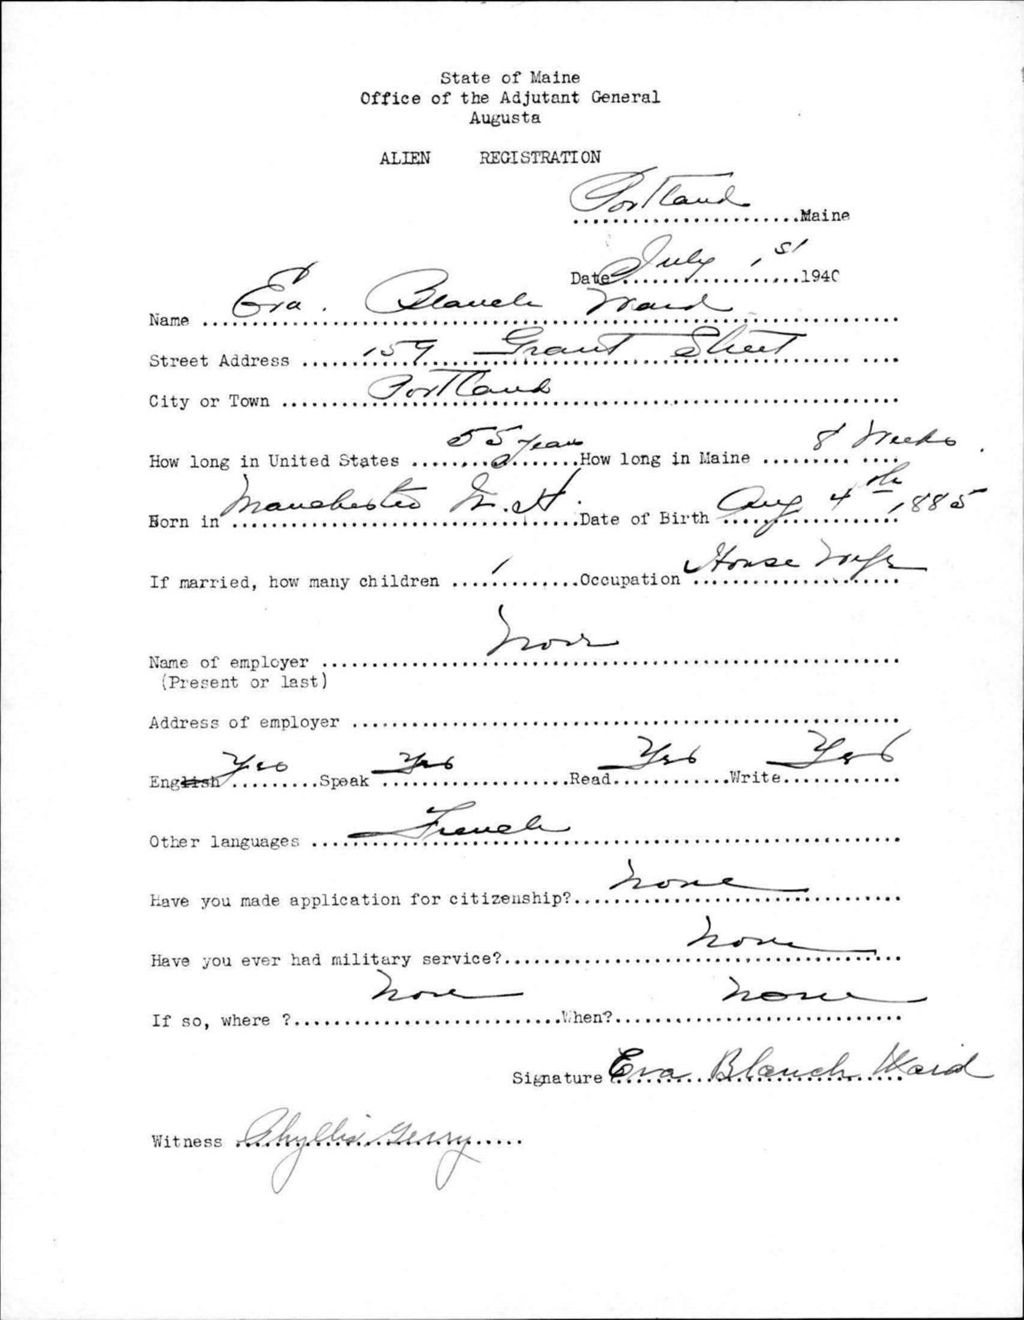 State of Maine
Office of the Adjutant General
Augusta
ALIEN REGISTRATION
Portland Maine
Date July 1st 1940
Name Eva. Blanch Ward
Street Address 159 Grant Street
City or Town Portland
How long in United States 55 years How long in Maine 8 Weeks.
Born in Manchester N.H. Date of Birth Aug 4th, 1885
If married, how many children 1 Occupation House Wife
Name of employer None
(Present or last)
Address of employer
English Yes Speak Yes Read Yes Write Yes
Other languages French
Have you made application for citizenship? None
Have you ever had military service? None
If so, where ? None When? None
Signature Eva Blanch Ward
Witness Phyllis Gerry